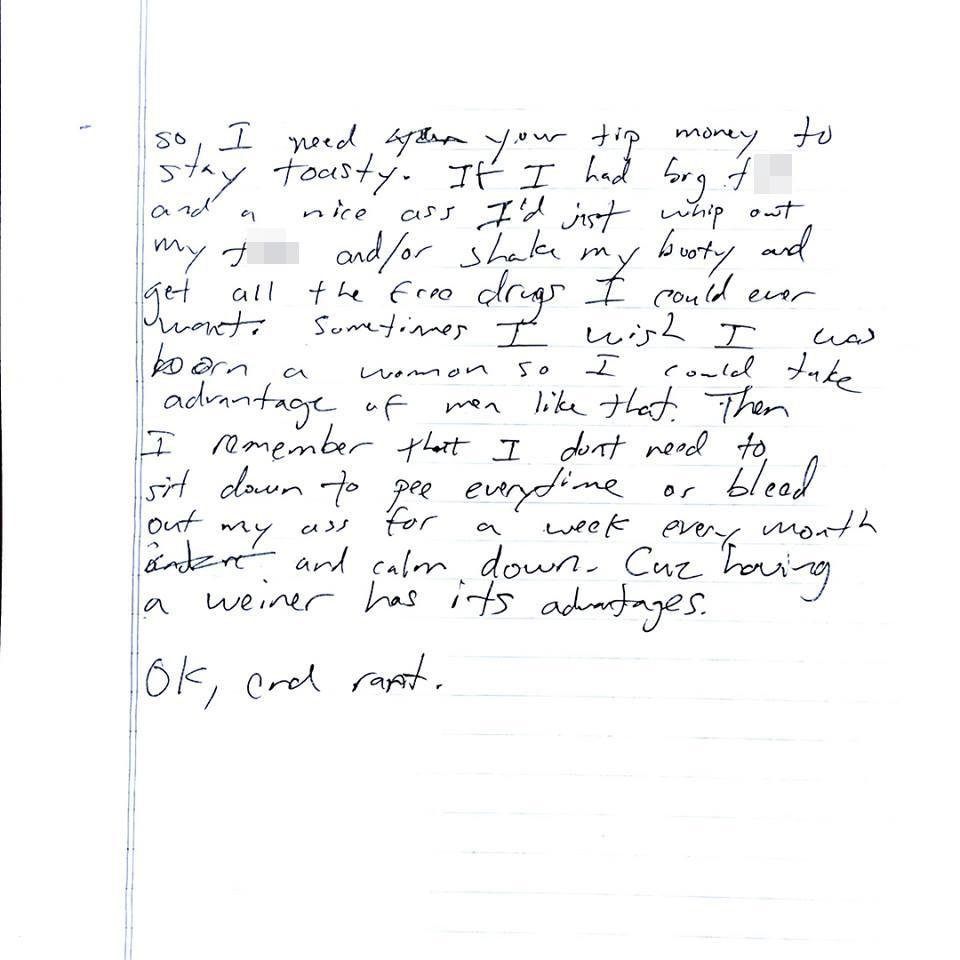 so, I need your tip money to
stay toasty. If I had big t
and a nice ass I'd jist whip out
my t and/or shake my booty and
get all the free drugs I could ever
want. Sometimes I wish I was
born a woman so I could take
advantage of men like that. Then
I remember that I dont need to
sit down to pee everytime or bleed
out my ass for a week every month
and calm down. Cuz having
a weiner has its advantages.
OK, end rant.